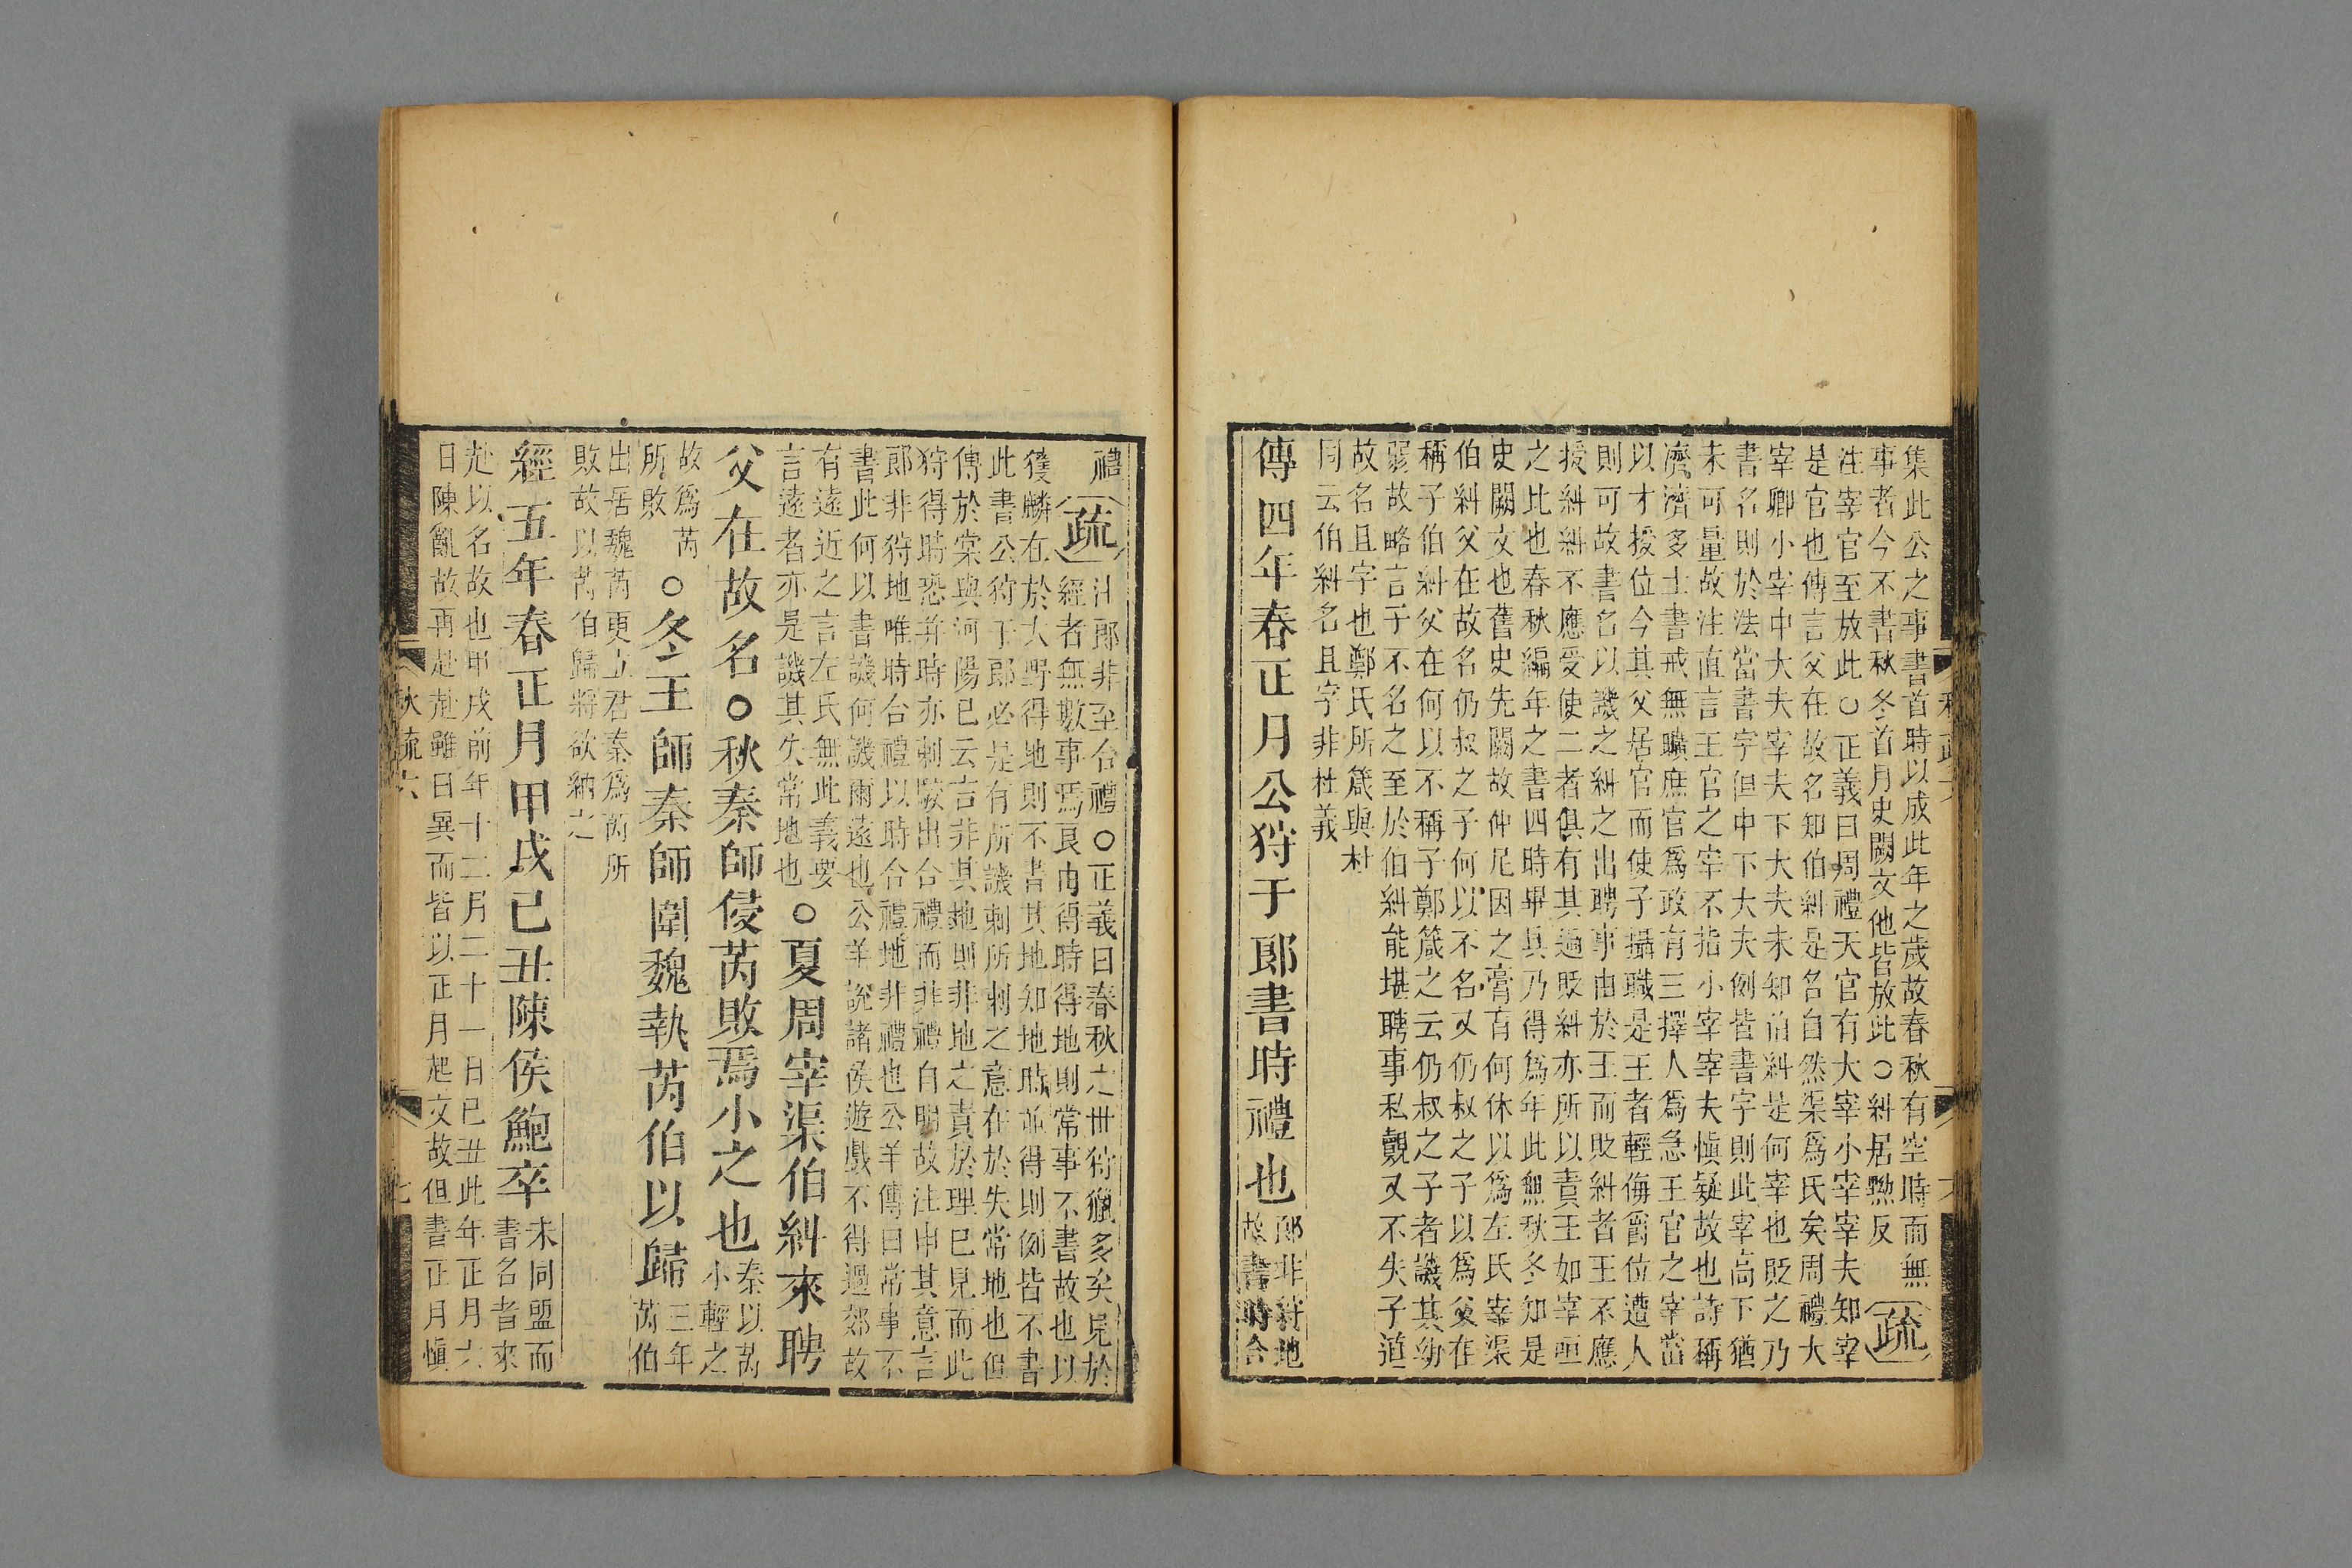 集此公之事書首時以成此年之歲故春秋有空時而無
事者今不書秋冬首月史闕文他皆放此○糾居黝反疏
注宰官至放此○正義曰周禮天官有大宰小宰宰夫知宰
是官也傳言父在故名知伯糾是名自然渠爲氏矣周禮大
宰卿小宰中大夫宰夫下大夫未知伯糾是何宰也貶之乃
書名則於法當書字但中下大夫例皆書字則此宰高下猶
未可量故注直言王官之宰不指小宰宰夫愼疑故也詩稱
濟濟多士書戒無曠庶官爲政有三擇人爲急王官之宰當
以才授位今其父居官而使子攝職是王者輕侮爵位遣人
則可故書名以譏之糾之出聘事由於王而貶糾者王不應
授糾糾不應受使二者俱有其過貶糾亦所以責王如宰咺
之比也春秋編年之書四時畢具乃得爲年此無秋冬知是
史闕文也舊史先闕故仲尼因之膏肓何休以爲左氏宰渠
伯糾父在故名仍叔之子何以不名又仍叔之子以爲父在
稱子伯糾父在何以不稱子鄭箴之云仍叔之子者譏其幼
弱故略言子不名之至於伯糾能堪聘事私覿又不失子道
故名且字也鄭氏所箴與杜
同云伯糾名且字非杜義
傳四年春正月公狩于郎書時禮也郎非狩地
故書時合
禮疏注郎非至合禮○正義曰春秋之世狩獵多矣見於
經者無數事焉良由得時得地則常事不書故也以
獲麟在於大野得地則不書其地知地時並得則例皆不書
此書公狩于郎必是有所譏刺所刺之意在於失常地也但
傳於棠與河陽已云言非其地則非地之責於理已見而此
狩得時恐并時亦刺駮出合禮而非禮自明故注申其意言
郎非狩地唯時合禮以時合禮地非禮也公羊傳曰常事不
書此何以書譏何譏爾遠也公羊說諸侯遊戲不得過郊故
有遠近之言左氏無此義要
言遠者亦是譏其失常地也○夏周宰渠伯糾來聘
父在故名○秋秦師侵芮敗焉小之也秦以芮
小輕之
故爲芮
所敗○冬王師秦師圍魏執芮伯以歸三年
芮伯
出居魏芮更立君秦爲芮所
敗故以芮伯歸將欲納之
經五年春正月甲戌己丑陳侯鮑卒未同盟而
書名者來
赴以名故也甲戌前年十二月二十一日己丑此年正月六
日陳亂故再赴赴雖日異而皆以正月起文故但書正月愼
秋疏六
七